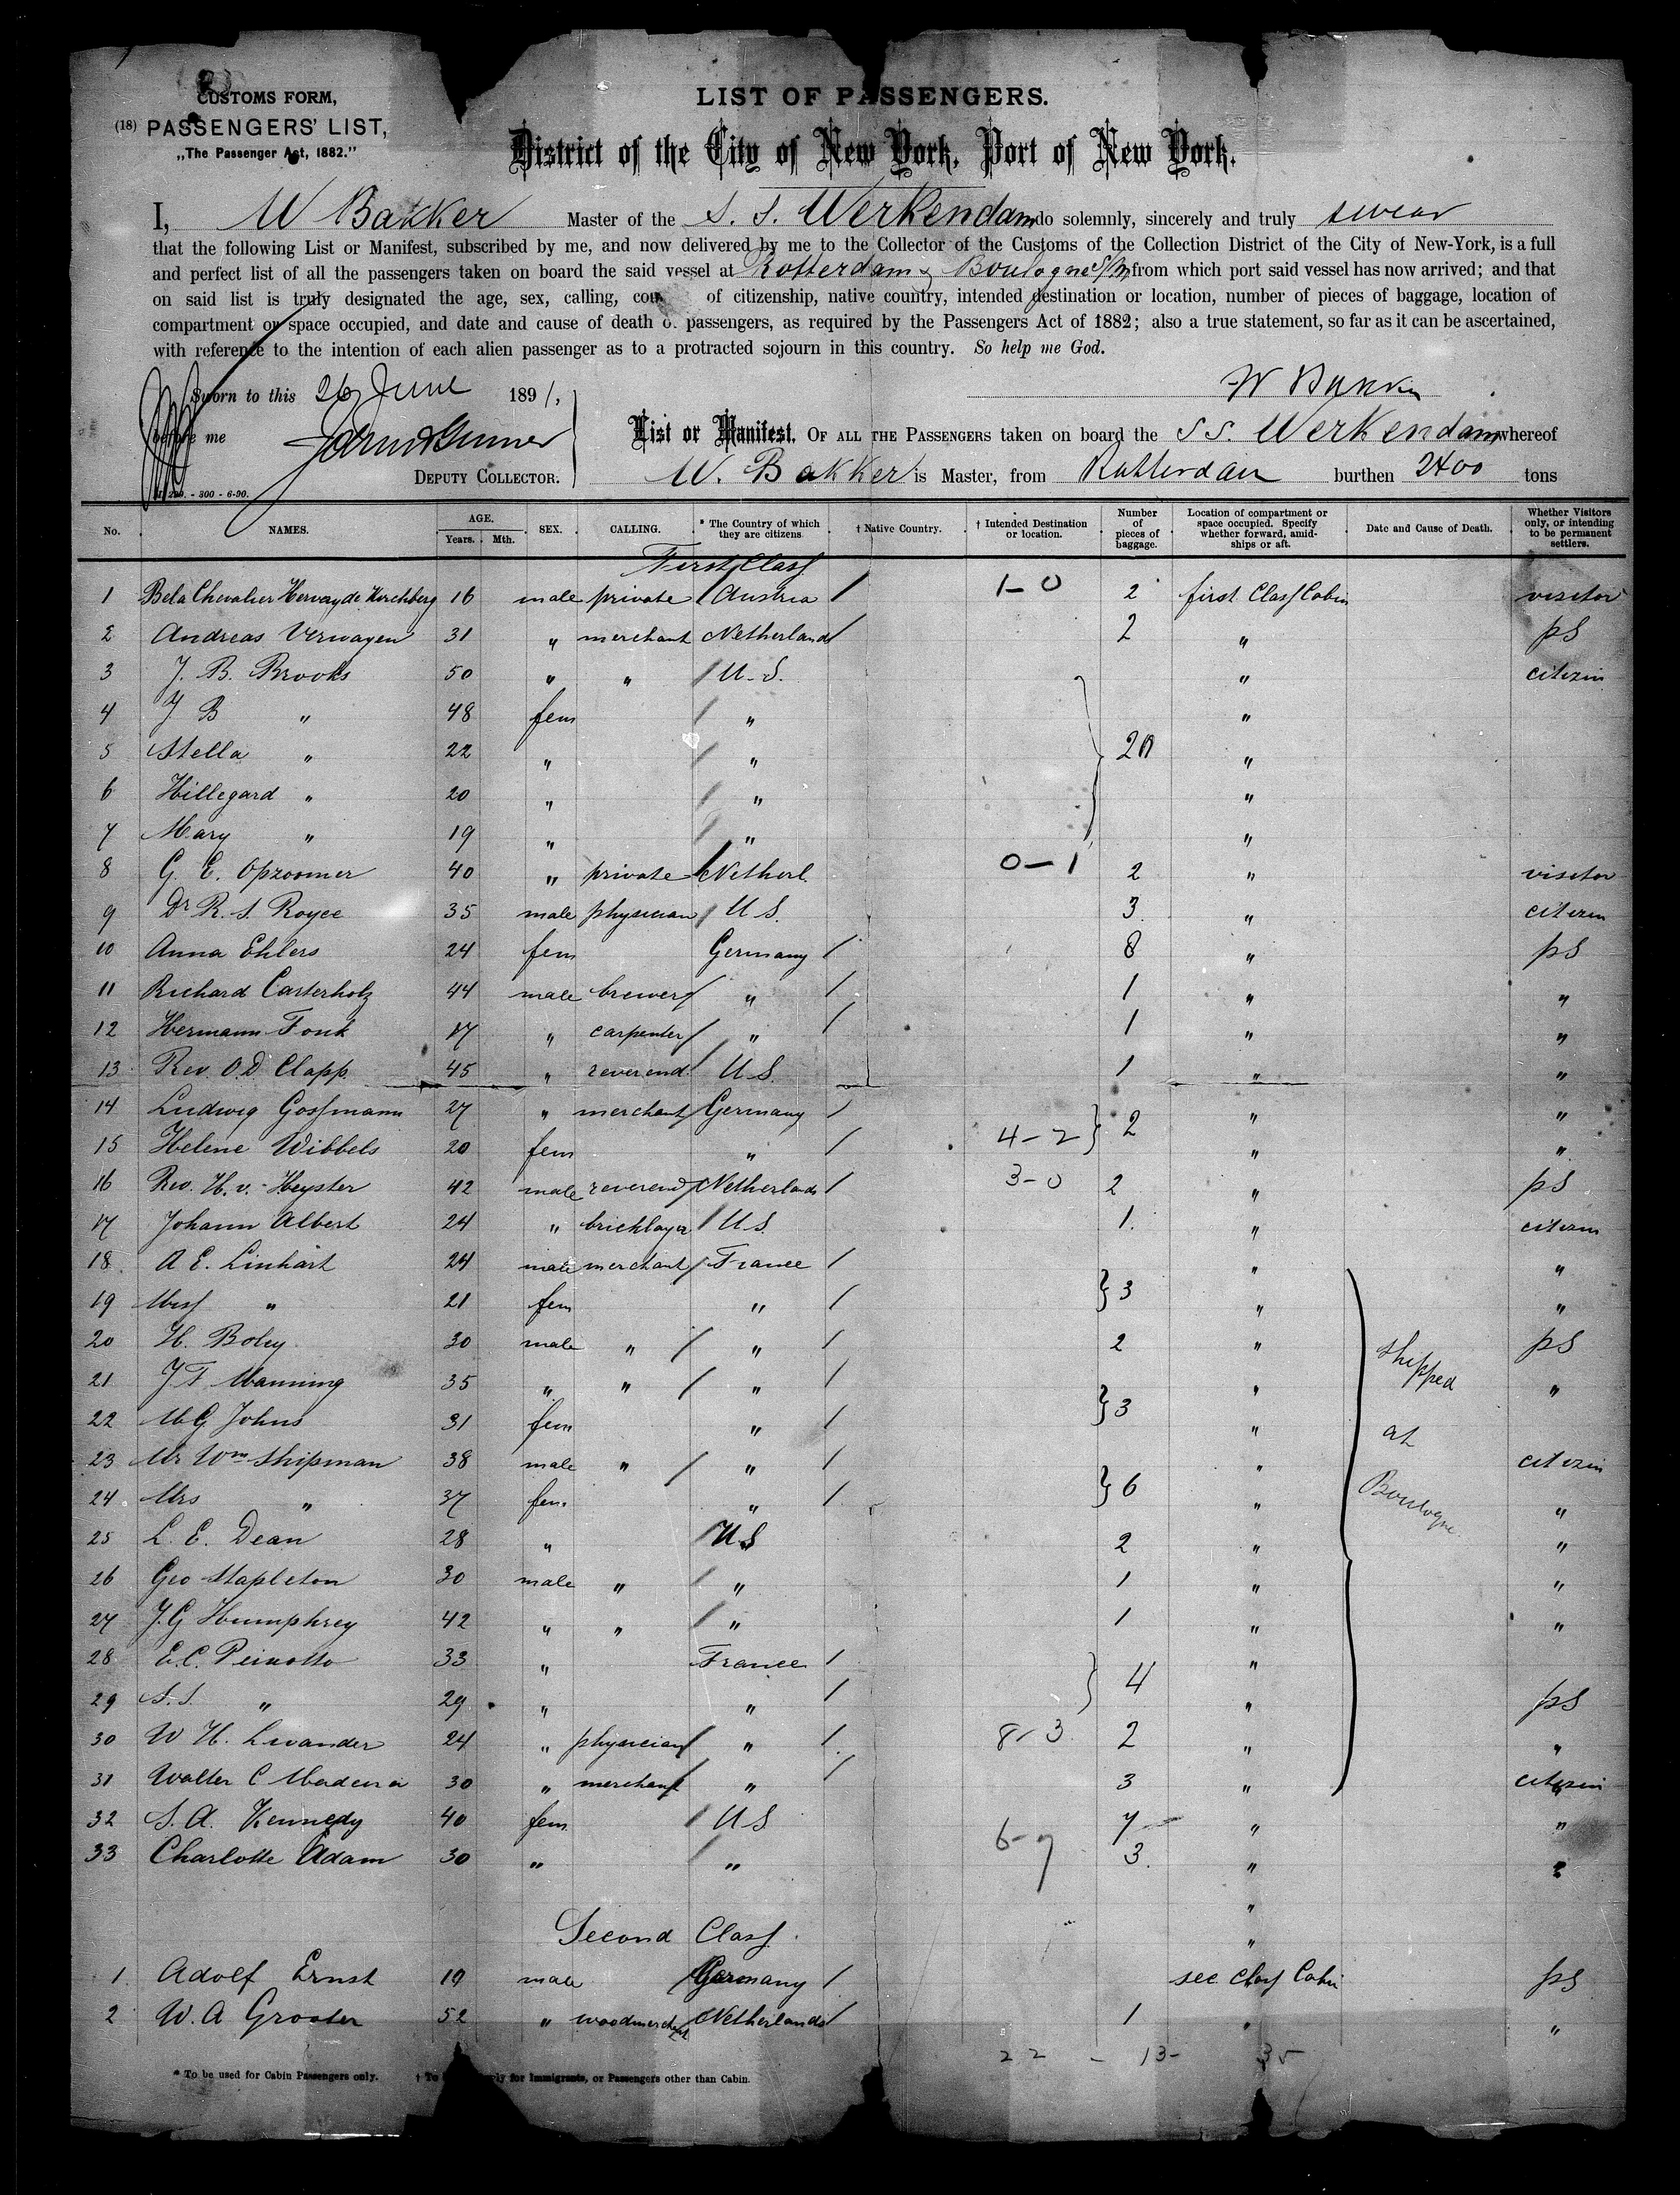 CUSTOMS FORM,
(18) PASSENGERS' LIST,
„The Passenger Act, 1882."
LIST OF PASSENGERS.
District of the City of New York, Port of New York.
I, W Bakker Master of the S. S. Werkendam do solemnly, sincerely and truly swear
that the following List or Manifest, subscribed by me, and now delivered by me to the Collector of the Customs of the Collection District of the City of New-York, is a full
and perfect list of all the passengers taken on board the said vessel at Rotterdam & Boulogne s/m from which port said vessel has now arrived; and that
on said list is truly designated the age, sex, calling, cou of citizenship, native country, intended destination or location, number of pieces of baggage, location of
compartment or space occupied, and date and cause of death of passengers, as required by the Passengers Act of 1882; also a true statement, so far as it can be ascertained,
with reference to the intention of each alien passenger as to a protracted sojourn in this country. So help me God.
Sworn to this 26 June 1891,
W Bakker
before me
DEPUTY COLLECTOR.
- 300 - 6-90.
List or Manifest, OF ALL THE PASSENGERS taken on board the S S. Werkendam whereof
W. Bakker is Master, from Rotterdam burthen 2400 tons
No. NAMES. AGE. Years. Mth. SEX. CALLING. * The Country of which they are citizens † Native Country. † Intended Destination or location. Number of pieces of baggage. Location of compartment or space occupied. Specify whether forward, amidships or aft. Date and Cause of Death. Whether Visitors only, or intending to be permanent settlers.
First Class
1 Bela Chevalier Hervay de Kirchberg 16 male private / Austria / 1-0 2 first Class Cabin visitor
2 Andreas Verwayen 31 " merchant Netherland / 2 " pS
3 J. B. Brooks 50 " " / U. S. " citizin
4 J B " 48 fem / " "
5 Stella " 22 " / " } 20 "
6 Hillegard " 20 " / " "
7 Mary " 19 " / " "
8 G. E. Opzoomer 40 " private / Netherl. 0-1 2 " visitor
9 Dr R. S. Royce 35 male physician / U S. 3. " citizin
10 Anna Ehlers 24 fem Germany / 8 " pS
11 Richard Casterholz 44 male brewer / " / 1 " "
12 Hermann Fonk 17 " carpenter / " / 1 " "
13 Rev. O.D Clapp. 45 " reverend. / U S. 1 " "
14 Ludwig Gossmann 27 " merchant / Germany / } 2 " "
15 Helene Wibbels 20 fem " / 4-2 " "
16 Rev. H. v. Heyster 42 male reverend / Netherlands / 3-0 2 " pS
17 Johann Albert 24 " bricklayer / U S. 1. " citizin
18. A E. Linhart 24 male merchant / France / } 3 " "
19 Mrs " 21 fem " / " "
20 H. Boley 30 male " / " / 2 " pS
21 J. F Manning 35 " " / " / } 3 " "
22 M G Johns 31 fem " / "
23 Mr Wm Shipman 38 male " / " / } 6 " citizin
24 Mrs " 37 fem. " / " "
25 L. E. Dean 28 " / U S 2 " "
26 Geo Stapleton 30 male " / " 1 " "
27 J. G Humphrey 42 " " / " 1 " "
28 E. C. Peixotto 33 " France / } 4 "
29 S. S. " 29 " " / " pS
30 W H. Lwander 24 " physician / " / 8-3 2 " "
31 Walter C Madeira 30 " merchant / " / 3 " citizin
shipped
at
Boulogne.
32 S. A. Kennedy 40 fem / U S 7 " "
33 Charlotte Adam 30 " / " 6-7 3. " "
"
Second Class.
"
1. Adolf Ernst 19 male / Germany / sec Class Cabin pS
2 W. A Grooter 52 " woodmerchant / Netherlands / 1 " "
22 - 13- 35
* To be used for Cabin Passengers only. † To ly for Immigrants, or Passengers other than Cabin.